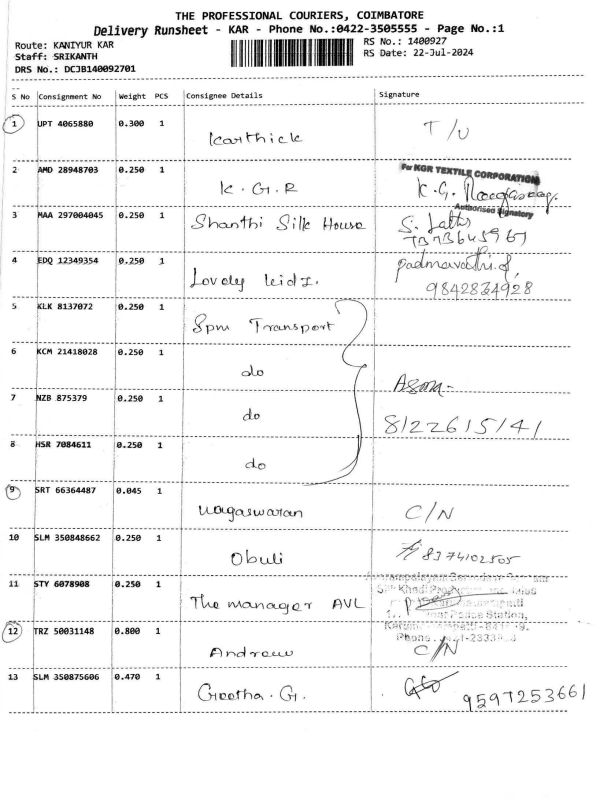 THE PROFESSIONAL COURIERS, COIMBATORE
Delivery Runsheet - KAR - Phone No.:0422-3505555 - Page No.:1
Route: KANIYUR KAR
RS No.: 1400927
Staff: SRIKANTH
RS Date: 22-Jul-2024
DRS No.: DCJB140092701
S No Consignment No Weight PCS Consignee Details Signature
1 UPT 4065880 0.300 1 Karthick T/U
2 AMD 28948703 0.250 1 K.G.R
For KGR TEXTILE CORPORATION
K.G.
Authorised Signatory
3 MAA 297004045 0.250 1 Shanthi Silk House S. Latha
7373645967
4 EDQ 12349354 0.250 1 Lovely kidz. padmavathi.
9842834928
5 KLK 8137072 0.250 1 Spm Transport
6 KCM 21418028 0.250 1 do
7 NZB 875379 0.250 1 do
8122615141
8 HSR 7084611 0.250 1 do
9 SRT 66364487 0.045 1 Nagaswaran C/N
10 SLM 350848662 0.250 1 Obuli 8374102505
11 STY 6078908 0.250 1 The manager AVL
Police Station,
Phone
12 TRZ 50031148 0.800 1 Andrew C/N
13 SLM 350875606 0.470 1 Geetha.G. 9597253661